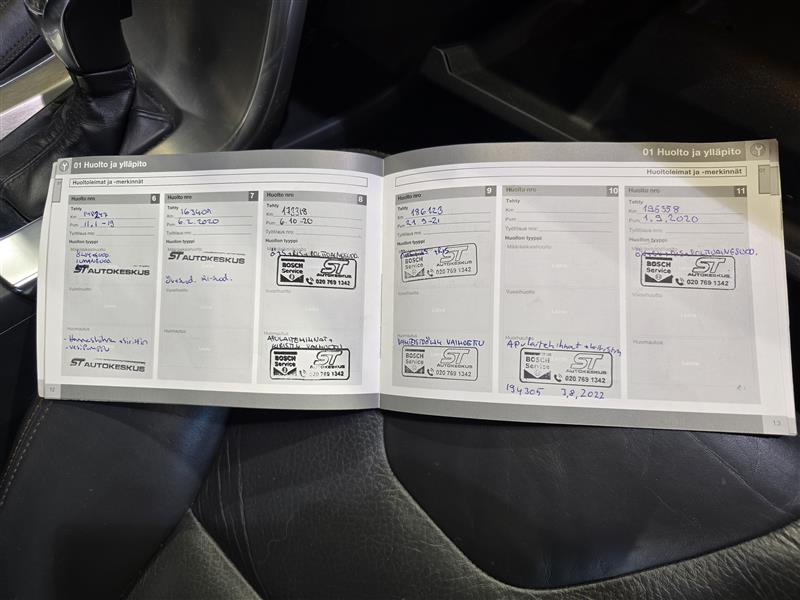 01 Huolto ja ylläpito
Huoltoleimat ja -merkinnät
Huolto nro 6
Tehty
Km 148247
Pvm 11.1-19
Työtilaus nro:
Huollon tyyppi
Määräaikaishuolto
ST AUTOKESKUS
Vuosihuolto
Huomautus
ST AUTOKESKUS
Huolto nro 7
Tehty
Km 163409
Pvm 6.2.2020
Työtilaus nro:
Huollon tyyppi
Määräaikaishuolto
ST AUTOKESKUS
Vuosihuolto
Huomautus
Huolto nro 8
Tehty
Km 172318
Pvm 6-10-20
Työtilaus nro:
Huollon tyyppi
BOSCH Service
ST AUTOKESKUS
020 769 1342
Vuosihuolto
Huomautus
APULAITEHIHNAT +
VAIHDETTU
BOSCH Service
ST AUTOKESKUS
020 769 1342
12
01 Huolto ja ylläpito
Huoltoleimat ja -merkinnät
Huolto nro 9
Tehty
Km 186123
Pvm 21.9-21
Työtilaus nro:
Huollon tyyppi
BOSCH Service
ST AUTOKESKUS
020 769 1342
Vuosihuolto
Huomautus
VAIHDETTU
BOSCH Service
ST AUTOKESKUS
020 769 1342
Huolto nro 10
Tehty
Km
Pvm
Työtilaus nro:
Huollon tyyppi
Määräaikaishuolto
Vuosihuolto
Huomautus
Apulaitehihnat +
BOSCH Service
ST AUTOKESKUS
020 769 1342
194305 3,8,2022
Huolto nro 11
Tehty
Km 195358
Pvm 1.9.2020
Työtilaus nro:
Huollon tyyppi
BOSCH Service
ST AUTOKESKUS
020 769 1342
Vuosihuolto
Huomautus
13